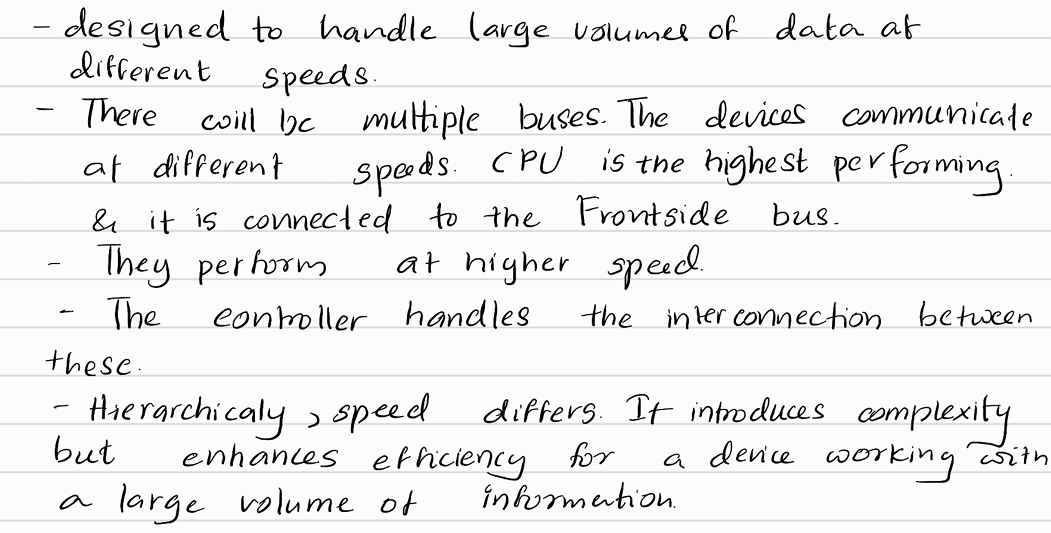 - designed to handle large volumes of data at
different speeds.
- There will be multiple buses. The devices communicate
at different speeds. CPU is the highest performing.
& it is connected to the Frontside bus.
- They perform at higher speed.
- The controller handles the interconnection between
these.
- Hierarchicaly, speed differs. It introduces complexity
but enhances efficiency for a device working with
a large volume of information.